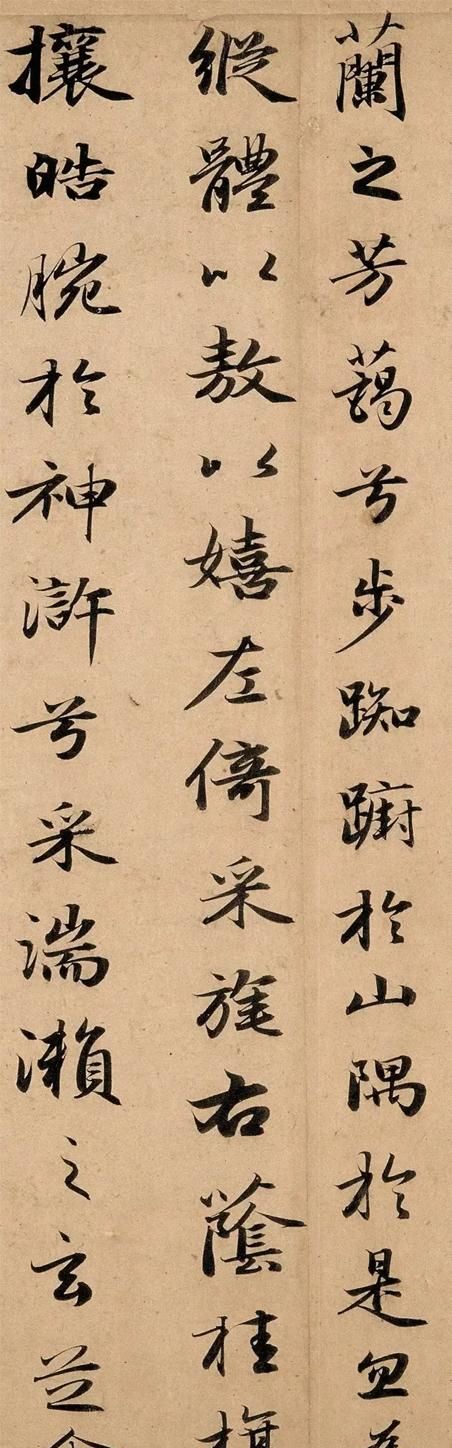 蘭之芳藹兮步踟躕於山隅於是忽
縱體以敖以嬉左倚采旄右蔭桂旗
攘皓腕於神滸兮采湍瀨之玄芝